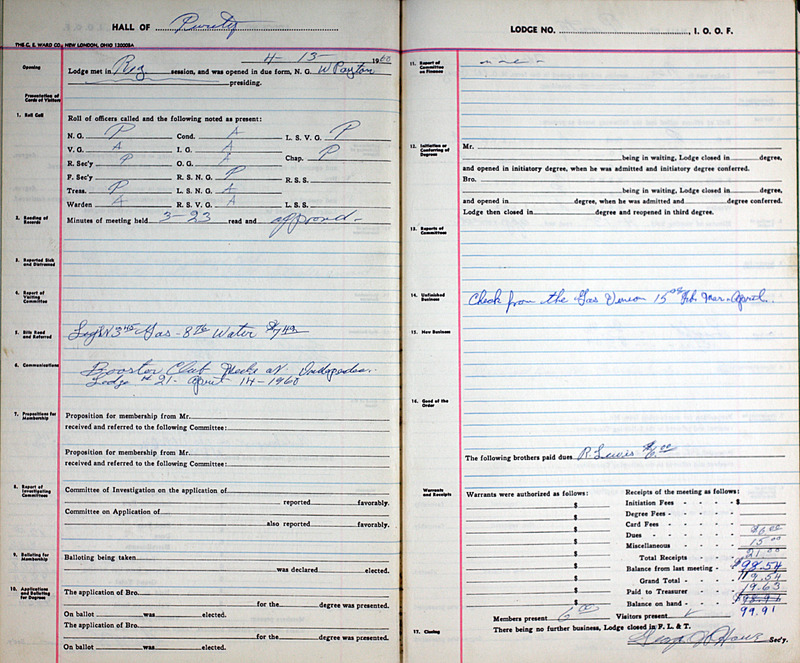 HALL OF Purity
THE C. E. WARD CO., NEW LONDON, OHIO 12000SA
4-13- 1960
Opening
Lodge met in Reg session, and was opened in due form, N. G. W Payton
presiding.
Presentation of Cards of Visitors
1. Roll Call
Roll of officers called and the following noted as present:
N. G. P Cond. A L. S. V. G. P
V. G. A I. G. A Chap. P
R. Sec'y P O. G. A
F. Sec'y R. S. N. G. P R. S. S.
Treas. P L. S. N. G. A
Warden A R. S. V. G. A L. S. S.
2. Reading of Records
Minutes of meeting held 3-23 read and approved-
3. Reported Sick and Distressed
4. Report of Visiting Committee
5. Bills Read and Referred
Gas - Water
6. Communications
Booster Club Meets at
Lodge # 21 - April 14-1960
7. Propositions for Membership
Proposition for membership from Mr.
received and referred to the following Committee:
Proposition for membership from Mr.
received and referred to the following Committee:
8. Report of Investigating Committees
Committee of Investigation on the application of
reported favorably.
Committee on Application of
also reported favorably.
9. Balloting for Membership
Balloting being taken
was declared elected.
10. Applications and Balloting for Degrees
The application of Bro.
for the degree was presented.
On ballot was elected.
The application of Bro.
for the degree was presented.
On ballot was elected.
LODGE NO. , I. O. O. F.
11. Report of Committee on Finance
12. Initiation or Conferring of Degrees
Mr.
being in waiting, Lodge closed in degree,
and opened in initiatory degree, when he was admitted and initiatory degree conferred.
Bro.
being in waiting, Lodge closed in degree,
and opened in degree, when he was admitted and degree conferred.
Lodge then closed in degree and reopened in third degree.
13. Reports of Committees
14. Unfinished Business
Check from the Gas 15 00 Feb. Mar. - April.
15. New Business
16. Good of the Order
The following brothers paid dues R. Lewis $6.00
Warrants and Receipts
Warrants were authorized as follows:
$
$
$
$
$
$
$
$
$
$
Receipts of the meeting as follows:
Initiation Fees - - - - $
Degree Fees -
Card Fees - - - -
Dues - - - - - $6.00
Miscellaneous - - - 15.00
Total Receipts 21.00
Balance from last meeting - $98.54
Grand Total - - 119.54
Paid to Treasurer - - 19.63
Balance on hand - -
99.91
Members present 6 Visitors present
17. Closing
There being no further business, Lodge closed in F. L. & T.
Sec'y.